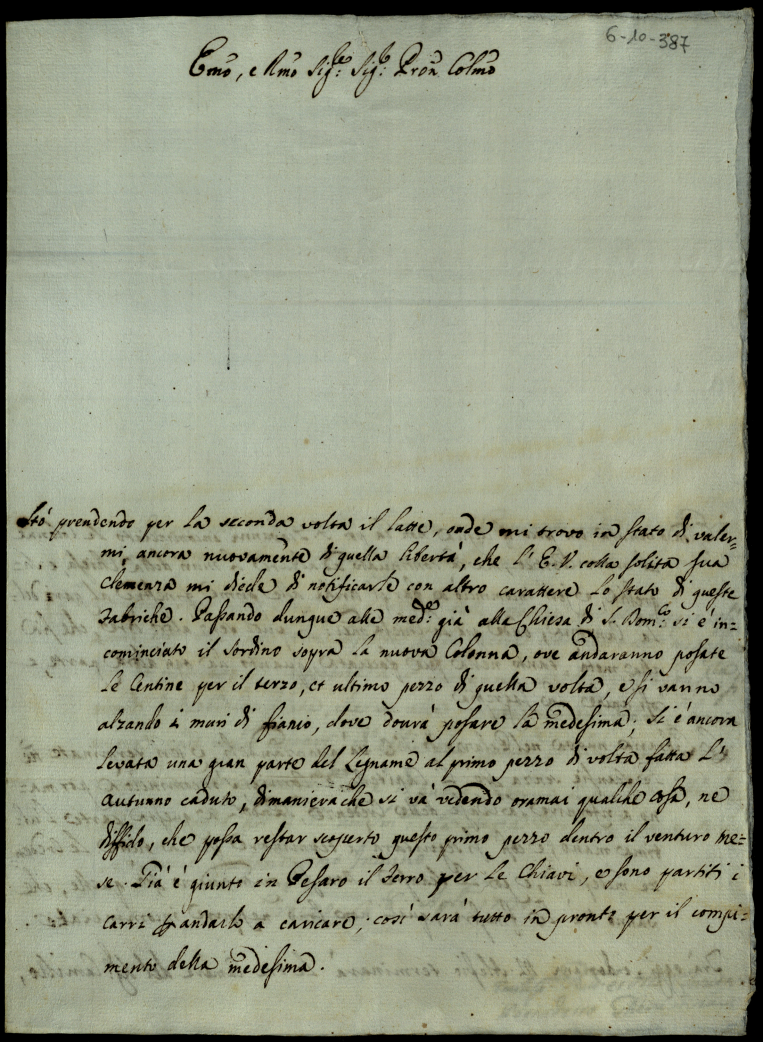 6-10-387
Emo, e Rmo Sigre: Sigr: Pron Colmo
Stò prendendo per la seconda volta il latte, onde mi trovo in stato di valer=
mi ancora nuovamente di quella libertà, che l'E. V. colla solita sua
clemenza mi diede di notificarle con altro carattere lo stato di queste
Fabriche. Passando dunque alle med:e già alla Chiesa di S. Dom:co si è in=
cominciato il sordino sopra la nuova Colonna, ove andaranno posate
le Centine per il terzo, et ultimo pezzo di quella volta, e si vanno
alzando i muri di fianco, dove dourà posare la medesima; si è ancora
levata una gran parte del Legname al primo pezzo di volta fatta l'
autunno caduto, dimanierache si và vedendo oramai qualche cosa, ne
diffido, che possa restar scoperto questo primo pezzo dentro il venturo me=
se. Già è giunto in Pesaro il ferro per le Chiavi, e sono partiti i
carri p andarlo a caricare, così sarà tutto in pronto per il compi=
mento della medesima.